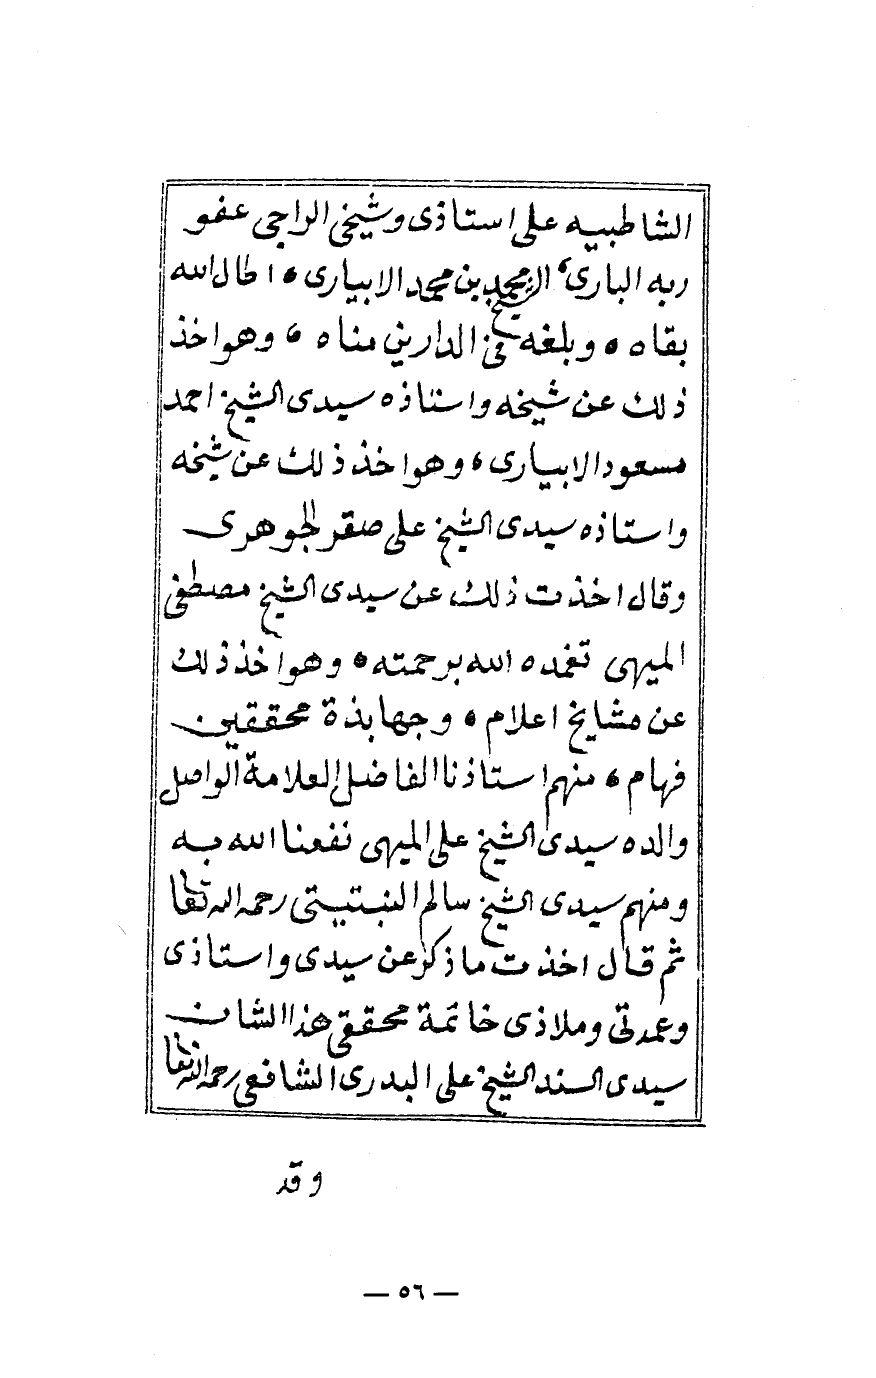 الشاطبيه على استاذى وشيخى الراجى عفو
ربه البارى الشيخ محمد بن محمد الابيارى اطال الله
بقاه وبلغه فى الدارين مناه وهو اخذ
ذلك عن شيخه واستاذه سيدى الشيخ احمد
مسعود الابيارى وهو اخذ ذلك عن شيخه
واستاذه سيدى الشيخ على صقر الجوهرى
وقال اخذت ذلك عن سيدى الشيخ مصطفى
الميهى تغمده الله برحمته وهو اخذ ذلك
عن مشايخ اعلام وجهابذة محققين
فهام منهم استاذنا الفاضل العلامة الواصل
والده سيدى الشيخ على الميهى نفعنا الله به
ومنهم سيدى الشيخ سالم النبتيتى رحمه الله تعا
ثم قال اخذت ما ذكر عن سيدى واستاذى
وعمدتى وملاذى خاتمة محققى هذا الشان
سيدى السند الشيخ على البدرى الشافعى رحمه الله تعا
وقد
— ٥٦ —